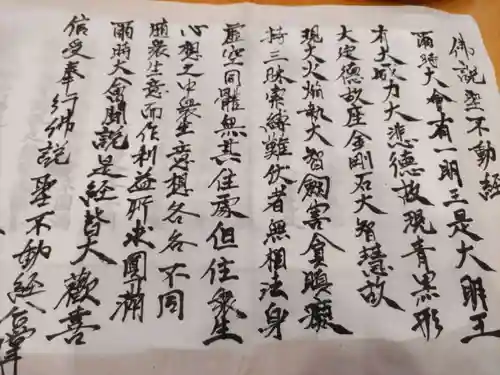 佛說聖不動經
爾時大會有一明王是大明王
有大威力大悲德故現青黑形
大定德故座金剛石大智慧故
現大火焰執大智劔害貪瞋癡
持三昧索縛難伏者無相法身
虛空同體無其住處但住衆生
心想之中衆生意想各各不同
隨衆生意而作利益所求圓滿
爾時大會聞說是經皆大歡喜
信受奉行佛說聖不動經